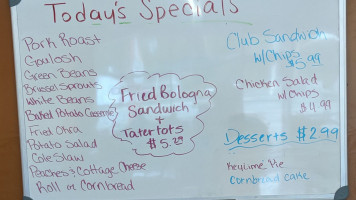 Today's Specials
Pork Roast
Goulosh
Green Beans
Brussel Sprouts
White Beans
Baked Potato Casserole
Fried Okra
Potato Salad
Cole Slaw
Peaches & Cottage Cheese
Roll or Cornbread
Fried Bologna
Sandwich
+
Tatertots
$5.29
Club Sandwich
w/Chips
$5.99
Chicken Salad
w/Chips
$4.99
Desserts $2.99
Keylime Pie
Cornbread Cake